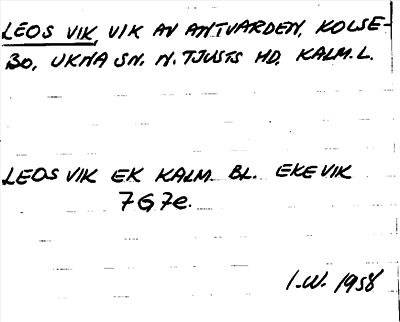 LEOS VIK, VIK AV ANTVARDEN, KOLSE-
BO, UKNA SN. N. TJUSTS HD. KALM. L.
LEOS VIK EK KALM. BL. EKEVIK
7G7e.
I.W. 1958